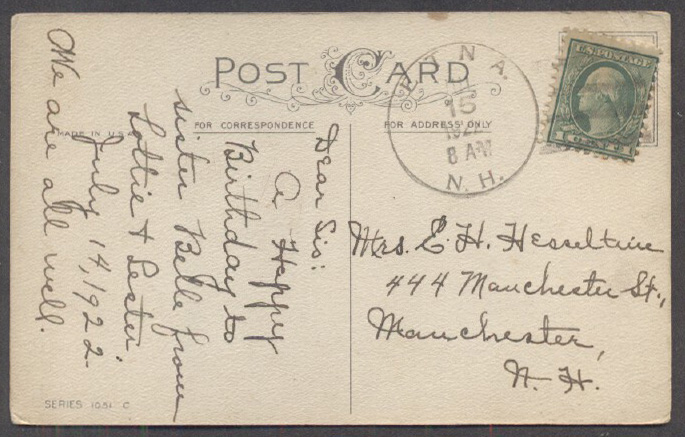 POST CARD
FOR CORRESPONDENCE
FOR ADDRESS ONLY
MADE IN U.S.A
Dear Sis:
A Happy
Birthday to
sister Belle from
Lottie & Lester.
July 14, 1922.
We are all well.
SERIES 1051 C
N A.
15
1922
8 AM
N. H.
U.S. POSTAGE
Mrs. E. H. Hesseltine
444 Manchester St.,
Manchester,
N. H.